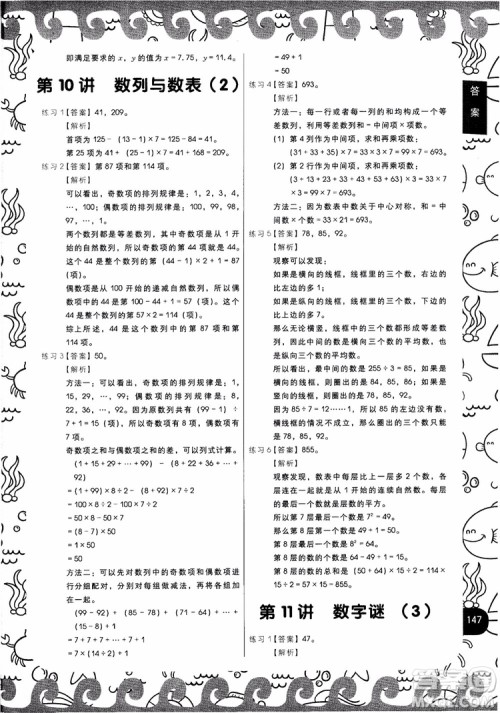 即满足要求的 x，y 的值为 x＝7.75，y＝11.4。
第 10 讲 数列与数表（2）
练习 1【答案】41，209。
【解析】
首项为 125－（13－1）×7＝41
第 25 项为 41＋（25－1）×7＝41＋168＝209。
练习 2【答案】第 87 项和第 114 项。
【解析】
可以看出，奇数项的排列规律是：1，2，3，4，
…，100；偶数项的排列规律是：100，99，98，
97，…，1。
两个数列都是等差数列，其中奇数项是从 1 开始
的自然数列，所以奇数项的第 44 项就是 44。
这个 44 是整个数列的第（44－1）×2＋1＝87（项）
偶数项是从 100 开始的递减自然数列，所以偶
数项中的第 100－44＋1＝57（项）是 44。这个
44 是整个数列的第 57×2＝114（项）
综上所述，44 是这个数列中的第 87 项和第
114 项。
练习 3【答案】50。
【解析】
方法一：可以看出，奇数项的排列规律是：1，
15，29，…，99；偶数项的排列规律是：8，
22，36，…，92。因为原数列共有（99－1）÷
7＋1＝15（项），所以奇数项有 8 项，偶数项有
7 项。
奇数项之和与偶数项之和的差，可以列式计算。
（1＋15＋29＋…＋99）－（8＋22＋36＋…＋
92）
＝（1＋99）×8÷2－（8＋92）×7÷2
＝100×8÷2－100×7÷2
＝50×8－50×7
＝（8－7）×50
＝1×50
＝50
方法二：可以先对数列中的奇数项和偶数项进
行分组配对，分别对每组做减法，再将各组加
在一起。
（99－92）＋（85－78）＋（71－64）＋…＋
（15－8）＋1
＝7＋7＋7＋…＋7＋1
＝7×（15÷2）＋1
＝49＋1
＝50
练习 4【答案】693。
【解析】
方法一：每一行或者每一列的和均构成一个等
差数列，利用等差数列和＝中间项×项数。
（1）第 4 列作为中间项，求和再乘项数：
（31＋33＋35）×7＝33×3×7＝99×7＝693
（2）第 2 行作为中间项，求和再乘项数：
（3＋13＋23＋33＋43＋53＋63）×3＝33×7
×3＝99×7＝693
方法二：因为数表中数关于中心对称，和＝中
间数×个数＝33×21＝693。
练习 5【答案】78，85，92。
【解析】
观察可以发现：
如果是横向的线框，线框里的三个数，右边的
比左边的大 1；
如果是纵向的线框，线框里的三个数，下边的
比上边的大 7。
那么无论横竖，线框中的三个数都成等差数
列，因此中间的数是横向三个数的平均数，也
是纵向三个数的平均数。
所以看出，最中间的数是 255÷3＝85，如果是
横向的线框，则圈出的是 84，85，86；如果是
竖向的线框，则圈出的是 78，85，92。
因为 85÷7＝12……1，所以 85 的左边没有数，
横线框的情况不成立，那么圈出的三个数只能
是 78，85，92。
练习 6【答案】855。
【解析】
观察发现，数表中每层比上一层多 2 个数，各
层连在一起就是从 1 开始的连续自然数。而且
每层的最后一个数都是平方数。
所以第 7 层最后一个数是 7²＝49。
那么第 8 层第一个数是 49＋1＝50，
第 8 层最后一个数是 8²＝64。
第 8 层的个数是 64－49＋1＝15。
第 8 层的数的总和是（50＋64）×15÷2＝114×
15÷2＝57×15＝855。
第 11 讲 数字谜 （3）
练习 1【答案】47。
【解析】
答案
147